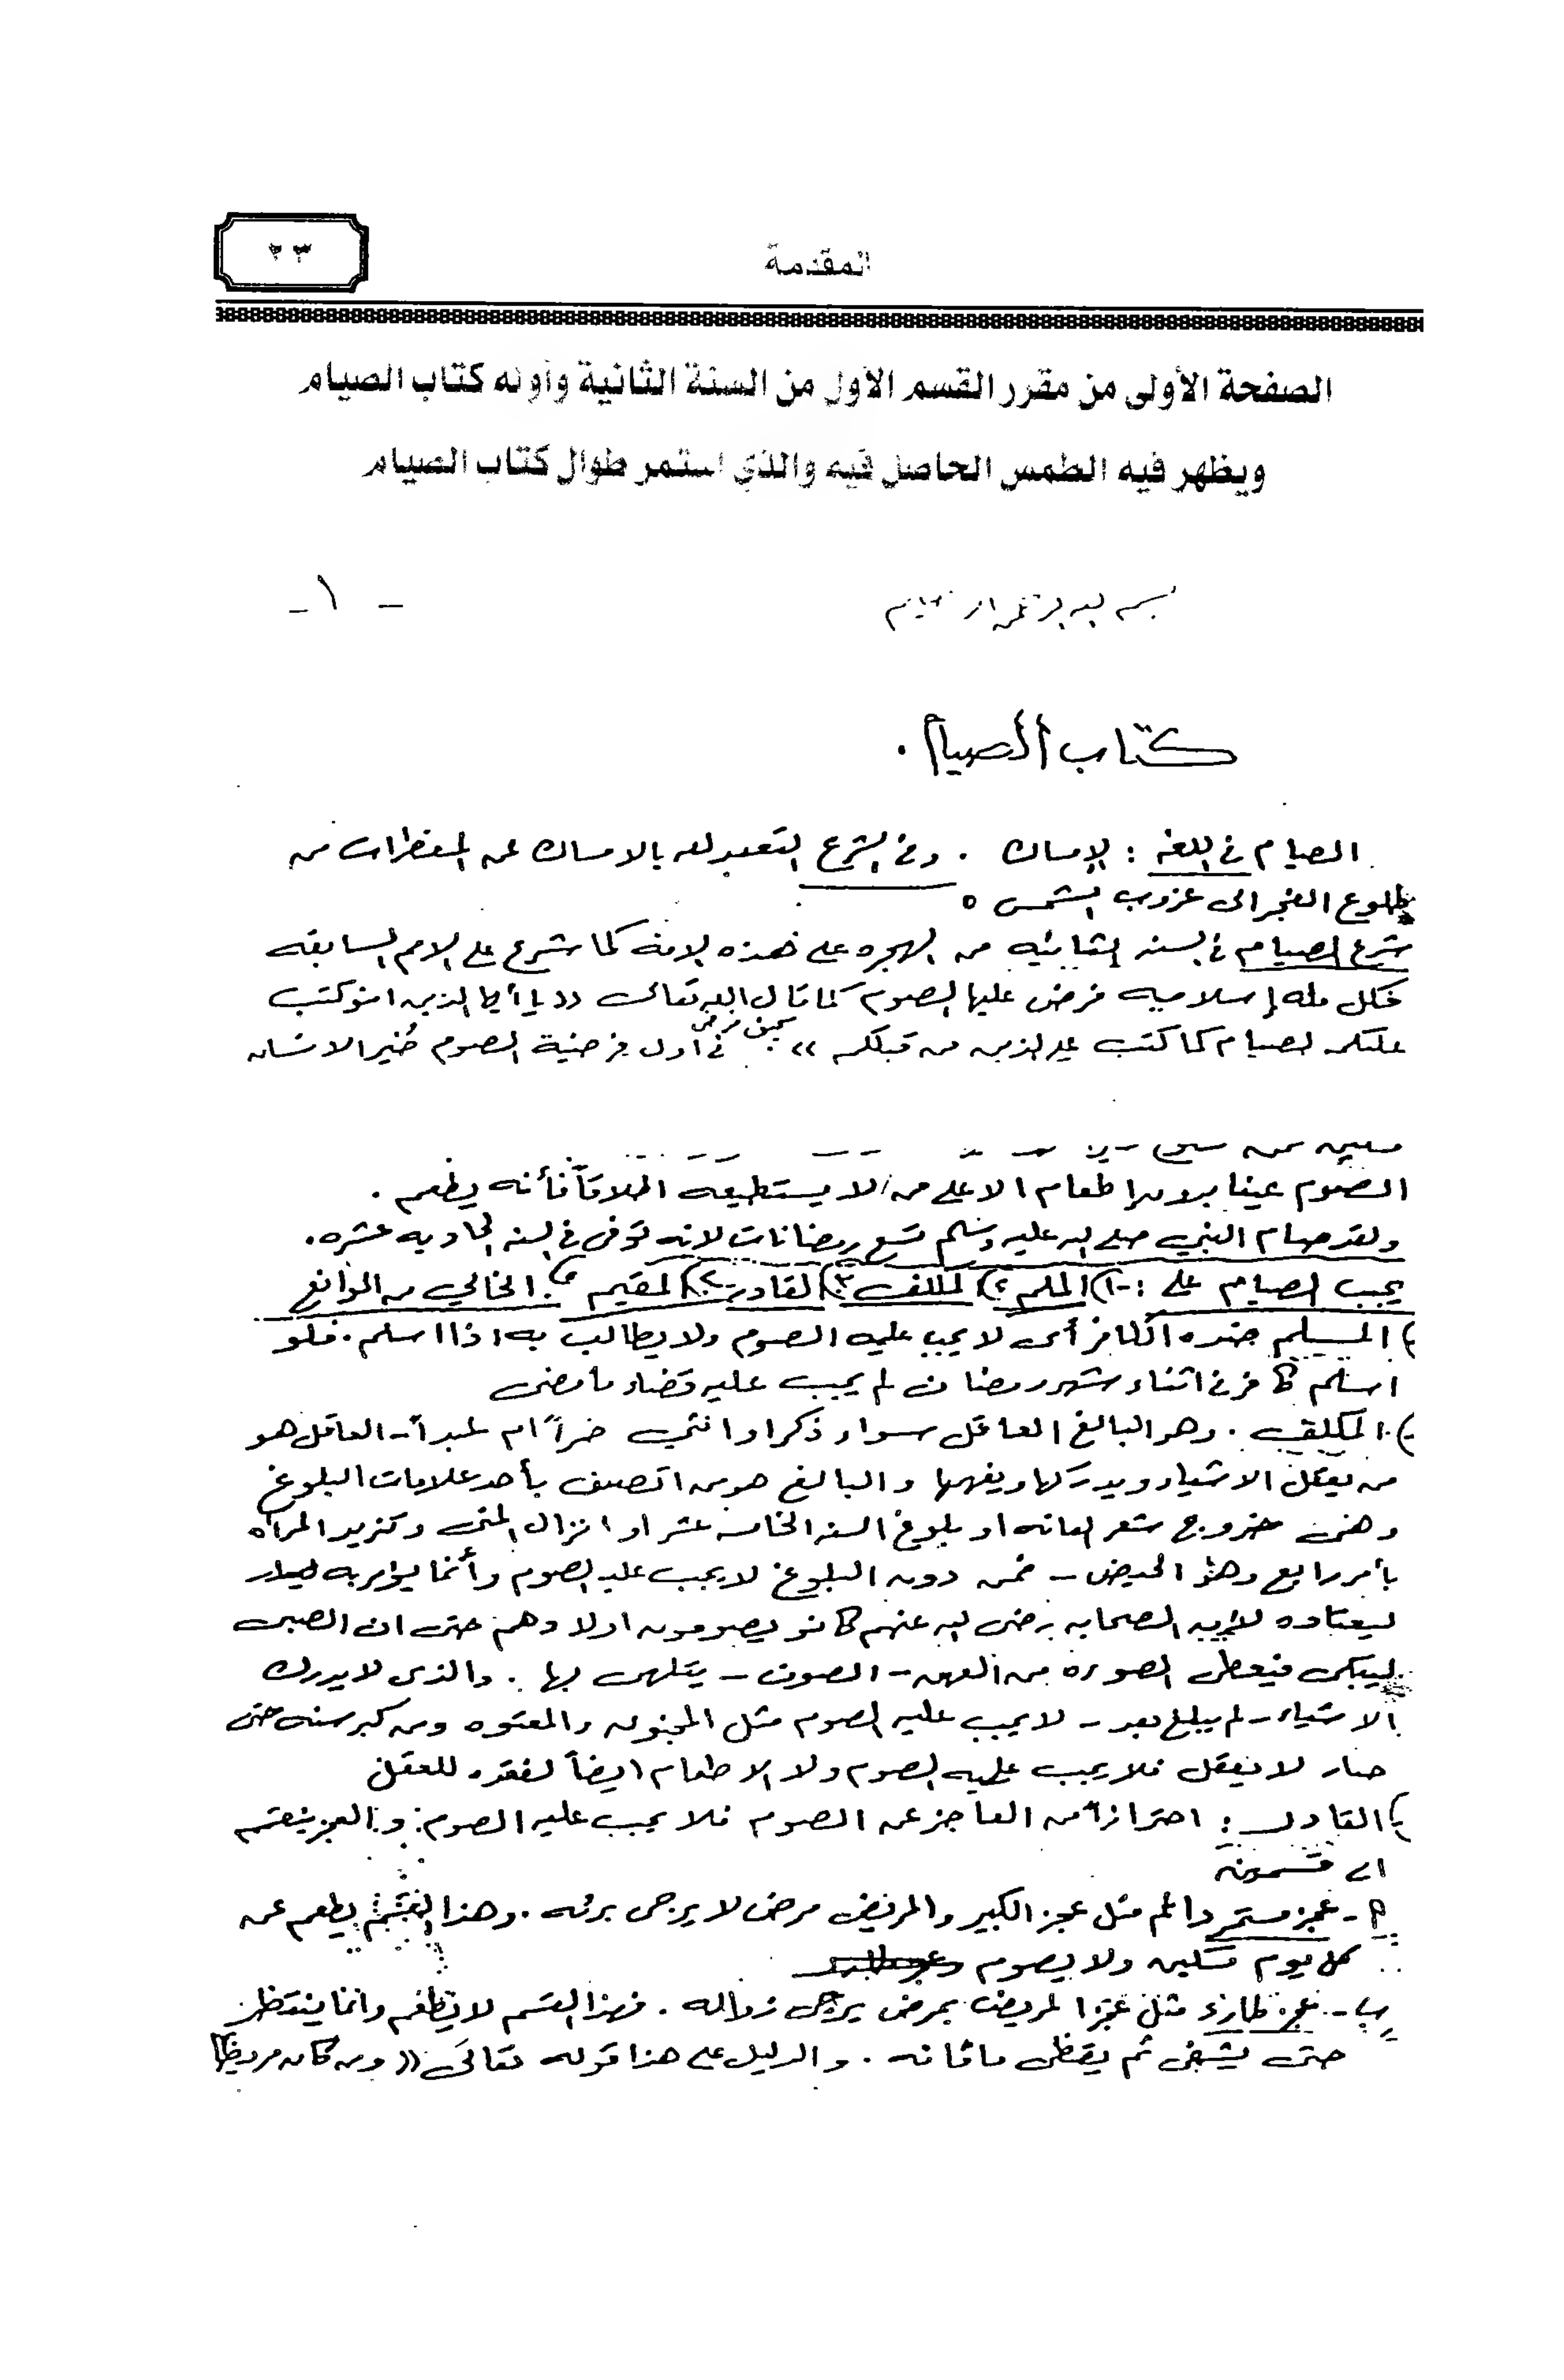 ٢٣
المقدمة
الصفحة الأولى من مقرر القسم الأول من السنة الثانية وأوله كتاب الصيام
ويظهر فيه الطمس الحاصل فيه والذي استمر طوال كتاب الصيام
- ١ -
بسم الله الرحمن الرحيم
كتاب الصيام .
الصيام في اللغه : الإمساك . وفي الشرع التعبد لله بالامساك عن المفطرات من
طلوع الفجر الى غروب الشمس ٥
شرع الصيام في السنه الثانيه من الهجره على هذه الامه كما شرع على الامم السابقه
فكل مله إسلاميه فرض عليها الصوم كما قال الله تعالى (( يا أيها الذين امنو كتب
عليكم الصيام كما كتب على الذين من قبلكم )) في اول فرضية الصوم خير الانسان
الصوم عينا بدون إطعام الا على من لا يستطيعه اطلاقاً فأنه يطعم .
ولقد صام النبي صلى الله عليه وسلم تسع رمضانات لانه توفى في السنه الحاديه عشره .
يجب الصيام على :- ١) المسلم ٢) المكلف ٣) القادر ٤) المقيم ٥) الخالي من الموانع
) المسلم ضده الكافر أى لا يجب عليه الصوم ولا يطالب به اذا اسلم . فلو
اسلم كافر في اثناء شهر رمضان لم يجب عليه قضاء ما مضى
) المكلف . وهو البالغ العاقل سواء ذكرا او انثى حراً ام عبداً - العاقل هو
من يعقل الاشياء ويدركها ويفهمها والبالغ هو من اتصف بأحد علامات البلوغ
وهى خروج شعر العانه او بلوغ السنه الخامسه عشر او انزال المنى وتزيد المرأه
بأمر رابع وهو الحيض - فمن دون البلوغ لا يجب عليه الصوم وأنما يؤمر به
ليعتاده الصحابه رضى الله عنهم كانو يصومون اولادهم حتى ان الصبى
ليبكى فيعطى الصوره من العهن - الصوف - يتلهى بها . والذى لا يدرك
الاشياء - لم يبلغ بعد - لا يجب عليه الصوم مثل المجنون والمعتوه ومن كبر سنه حتى
صار لا يعقل فلا يجب عليه الصوم ولا الاطعام ايضاً لفقده للعقل
) القادر : احترازاً من العاجز عن الصوم فلا يجب عليه الصوم . والعجز ينقسم
الى قسمين
أ - عجز مستمر دائم مثل عجز الكبير والمريض مرض لا يرجى برئه . وهذا القسم يطعم عن
كل يوم مسكين ولا يصوم
ب - عجز طارئ مثل عجز المريض بمرض يرجى زواله . فهذا القسم لا يطعم وانما ينتظر
حتى يشفى ثم يقضى ما فاته . والدليل على هذا قوله تعالى (( ومن كان مريضا